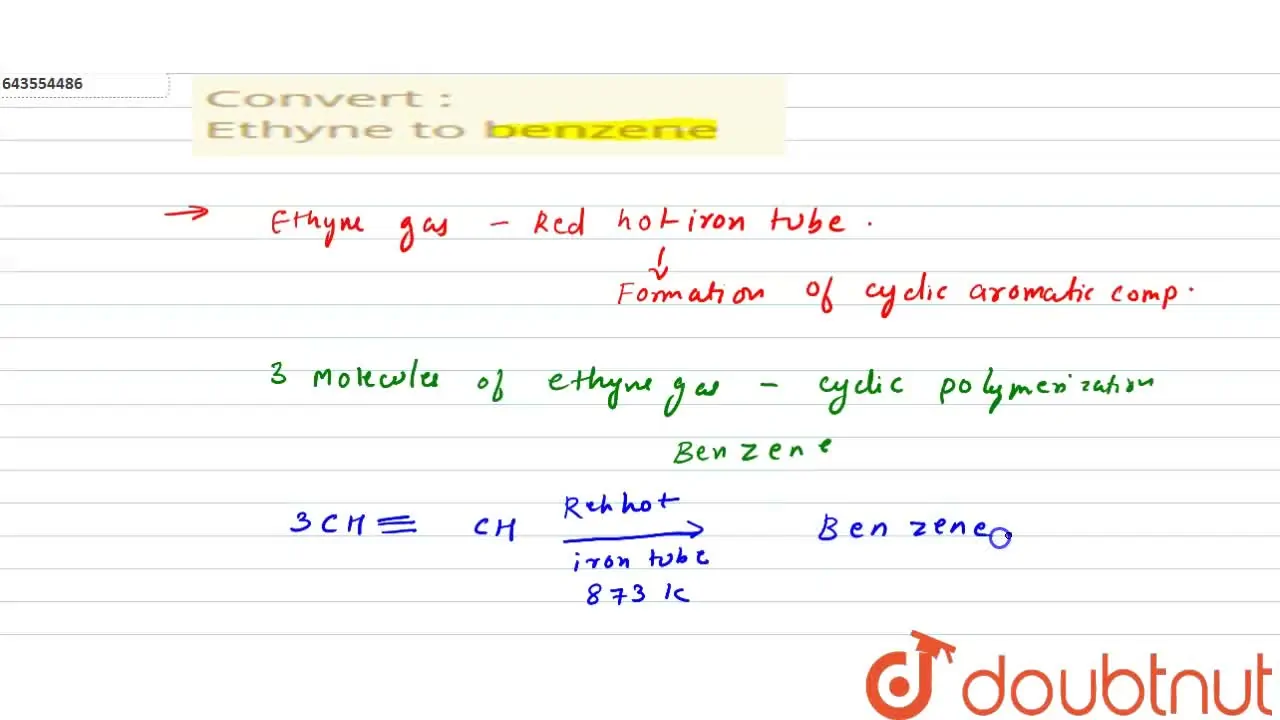 643554486
Convert :
Ethyne to benzene
→ Ethyne gas – Red hot iron tube.
↓
Formation of cyclic aromatic comp.
3 Molecules of ethyne gas – cyclic polymerization
Benzene
Reh hot
3CH≡ CH → Benzene
iron tube
873 K
doubtnut